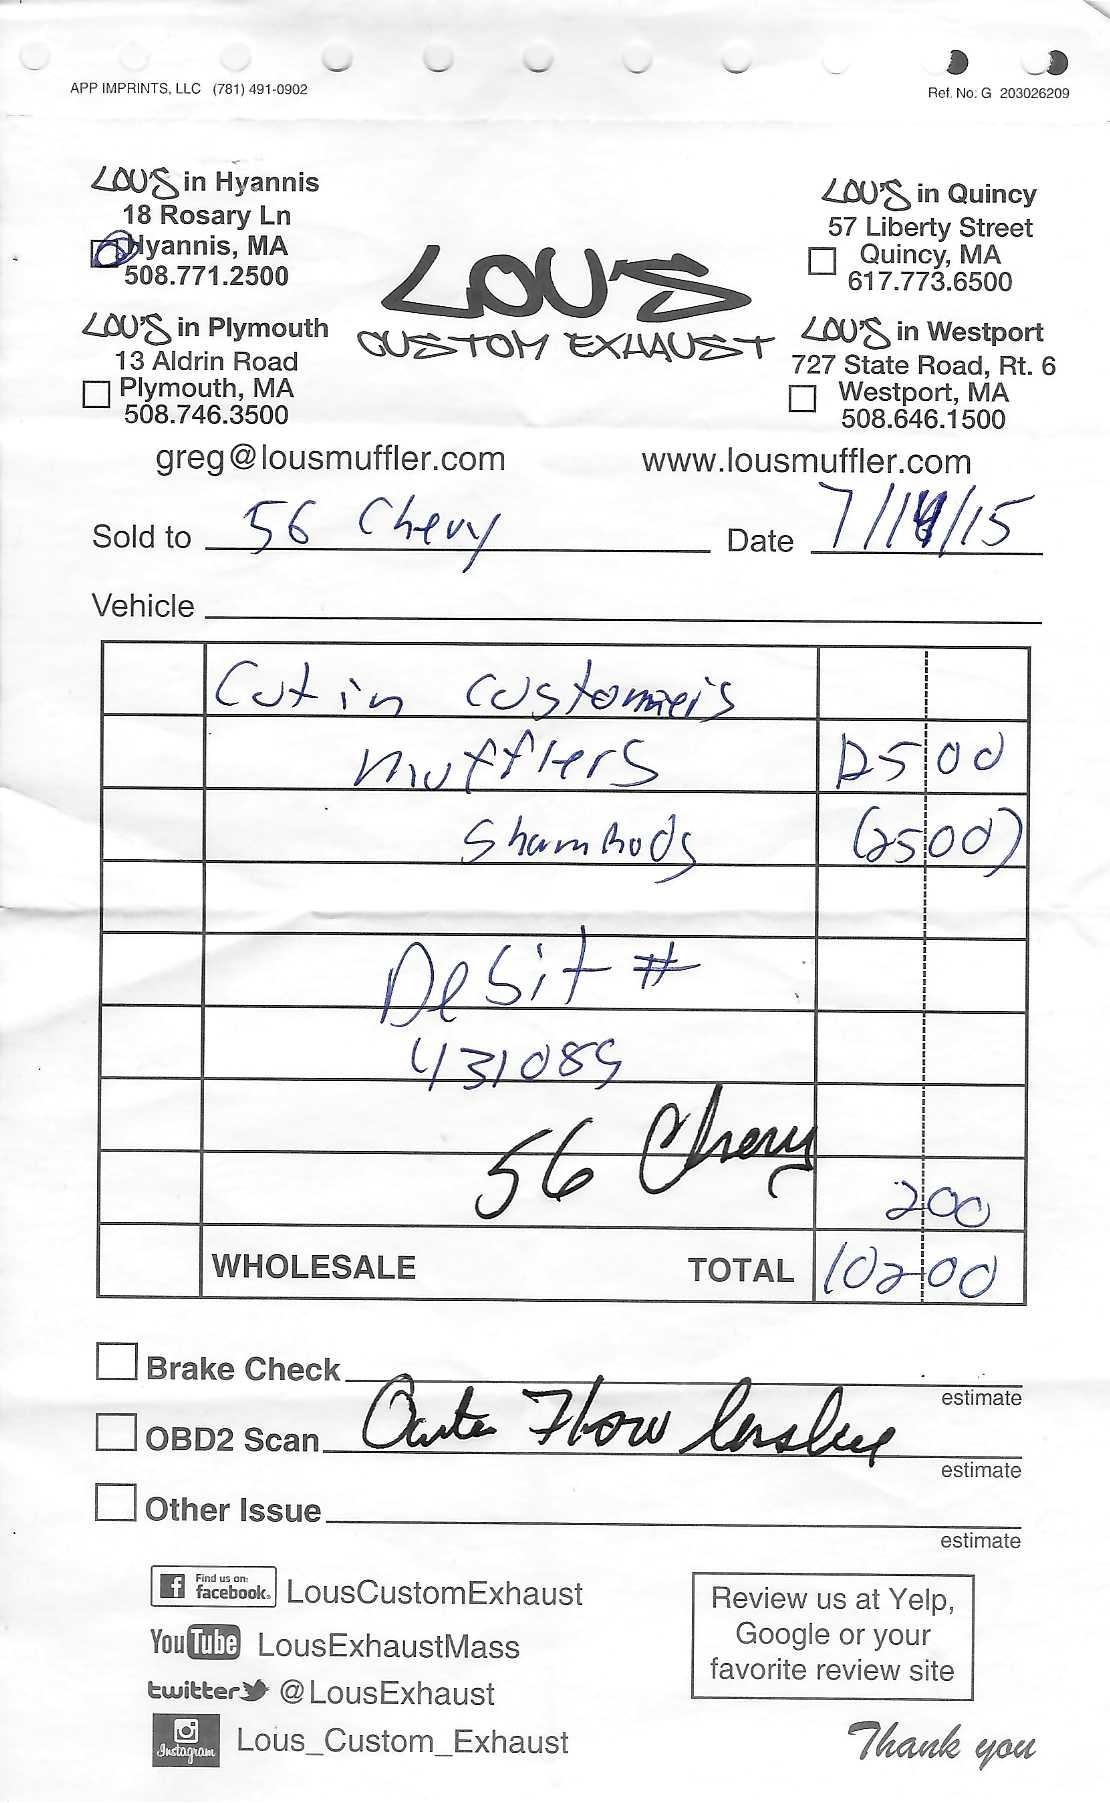 APP IMPRINTS, LLC (781) 491-0902
Ref. No: G 203026209
LOU'S in Hyannis
18 Rosary Ln
Hyannis, MA
508.771.2500
LOU'S in Plymouth
13 Aldrin Road
Plymouth, MA
508.746.3500
LOU'S
CUSTOM EXHAUST
LOU'S in Quincy
57 Liberty Street
Quincy, MA
617.773.6500
LOU'S in Westport
727 State Road, Rt. 6
Westport, MA
508.646.1500
greg@lousmuffler.com
www.lousmuffler.com
Sold to 56 Chevy
Date 7/14/15
Vehicle
Cut in customers
mufflers 125 00
ShamRods (25 00)
Debit #
431089
56 Chevy
2 00
WHOLESALE TOTAL 102 00
Brake Check
estimate
OBD2 Scan Flow
estimate
Other Issue
estimate
Find us on:
facebook. LousCustomExhaust
YouTube LousExhaustMass
twitter @LousExhaust
Instagram Lous_Custom_Exhaust
Review us at Yelp,
Google or your
favorite review site
Thank you